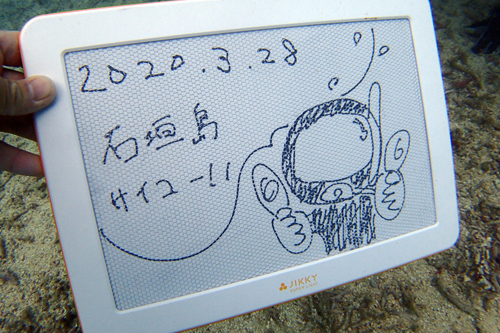 2020.3.28
石垣島
サイコー!!
JIKKY